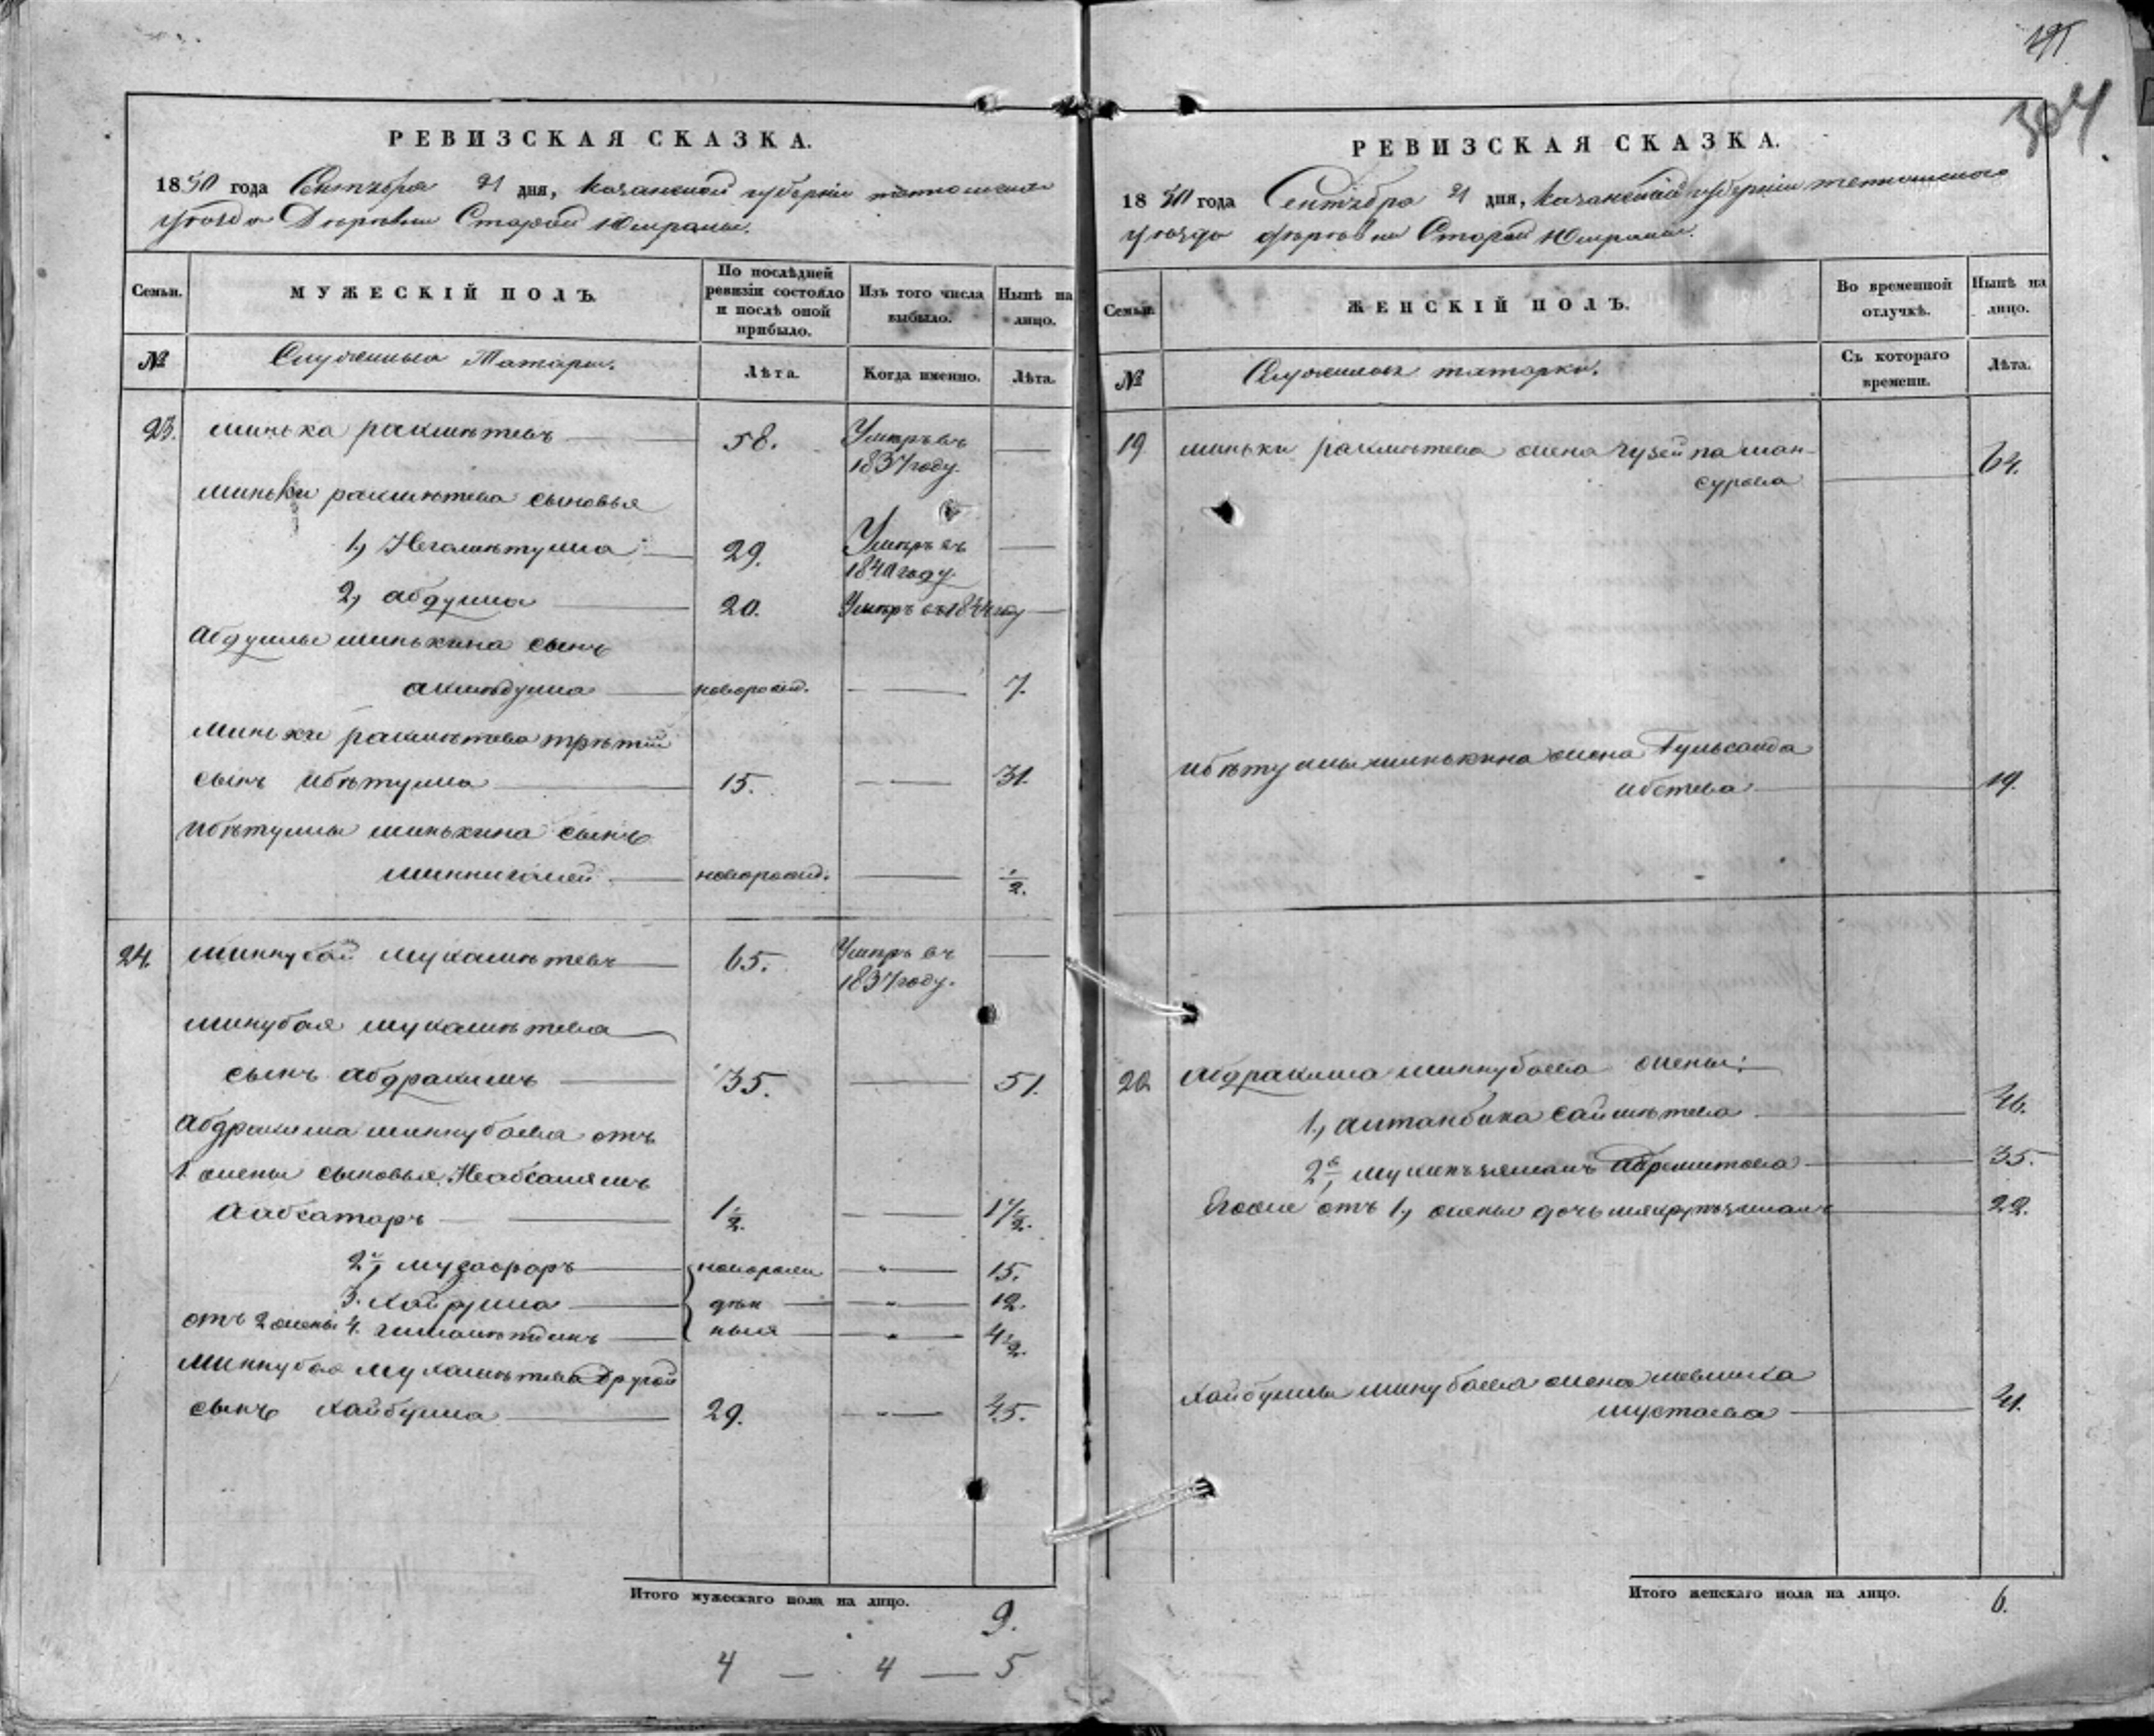 РЕВИЗСКАЯ СКАЗКА.
1850 года Сентября 21 дня, Казанской губернии тетюшскаго
уезда Деревни Старой
Семьи.
МУЖЕСКІЙ ПОЛЪ.
По послѣдней ревизіи состояло и послѣ оной прибыло.
Изъ того числа выбыло.
Нынѣ на лицо.
№
Служилыя Татары.
Лѣта.
Когда именно.
Лѣта.
23. минька рахмѣтевъ 58. Умеръ въ
1837 году.
миньки рахмѣтева сыновья
1, Негаметулла 29. Умеръ въ
1840 году.
2, абдулла 20. Умеръ въ 1844 году
Абдуллы минькина сынъ
ахмѣдулла новорожд. 7.
Миньки рахмѣтева третій
сынъ ибѣтулла 15. 31.
ибѣтуллы минькина сынъ
миннигалей новорожд. 1/2.
24. миннубай мухамѣтевъ 65. Умеръ въ
1837 году.
минубая мухамѣтева
сынъ абдрахимъ 35. 51.
Абдрахима миннубаева отъ
1 жены сыновья
1 1/2. 17 1/2.
2, новорож 15.
3. Хайрулла дѣн 12.
отъ 2 жены 4. ныя 4 1/2.
миннубая мухамѣтева другой
сынъ хайбулла 29. 45.
Итого мужескаго пола на лицо. 9.
4 — 4 — 5
304.
РЕВИЗСКАЯ СКАЗКА.
1850 года Сентября 21 дня, Казанской губерніи тетюшскаго
уезда деревни Старой
Семьи.
ЖЕНСКІЙ ПОЛЪ.
Во временной отлучкѣ.
Нынѣ на лицо.
№
Служилыя татарки.
Съ котораго времени.
Лѣта.
19 миньки рахмѣтева жена ман-
сурова 64.
ибѣтуллы минькина жена Гульсаида
19.
20 Абдрахима миннубаева жены:
1, алтанбика саймѣтева 46.
2, 35.
Егоже отъ 1, жены дочь 22.
Хайбуллы минубаева жена
мустаева 41.
Итого женскаго пола на лицо. 6.